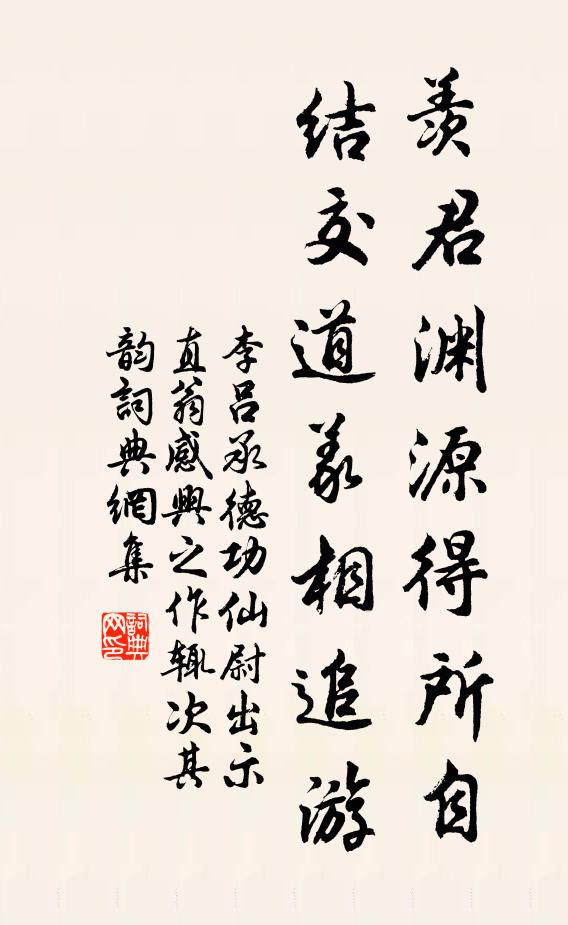 羨君渊源得所自
结交道義相追游
李吕承德功仙尉出示
直翁感興之作辄次其
韵詞典網集
詞典
网印